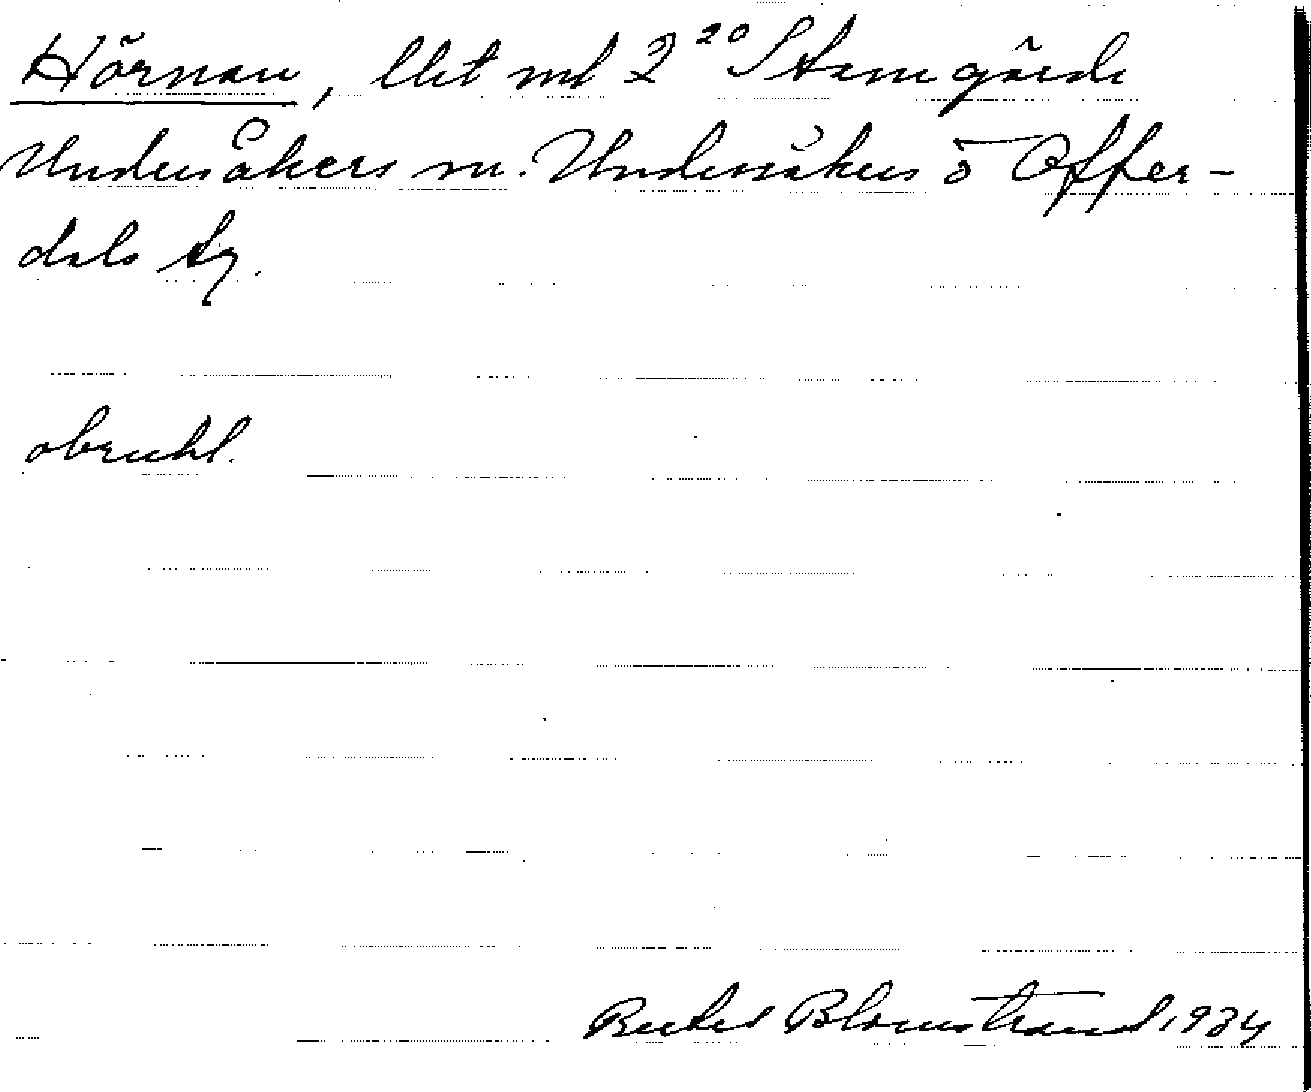 Hörnan, llit ml 2²⁰ Stamgärde
Undersåkers sn. Undersåkers o Offer-
dals tg.
obruhl.
Bertel Blomstrand 1934